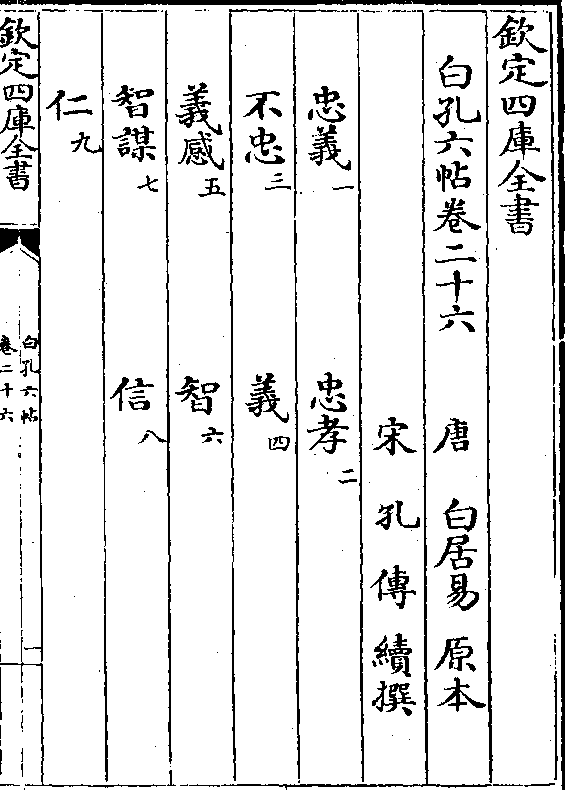 欽定四庫全書
白孔六帖卷二十六　唐　白居易　原本
宋　孔　傳　續撰
忠義一　忠孝二
不忠三　義四
義感五　智六
智謀七　信八
仁九
欽定四庫全書
白孔六帖
卷二十六
一